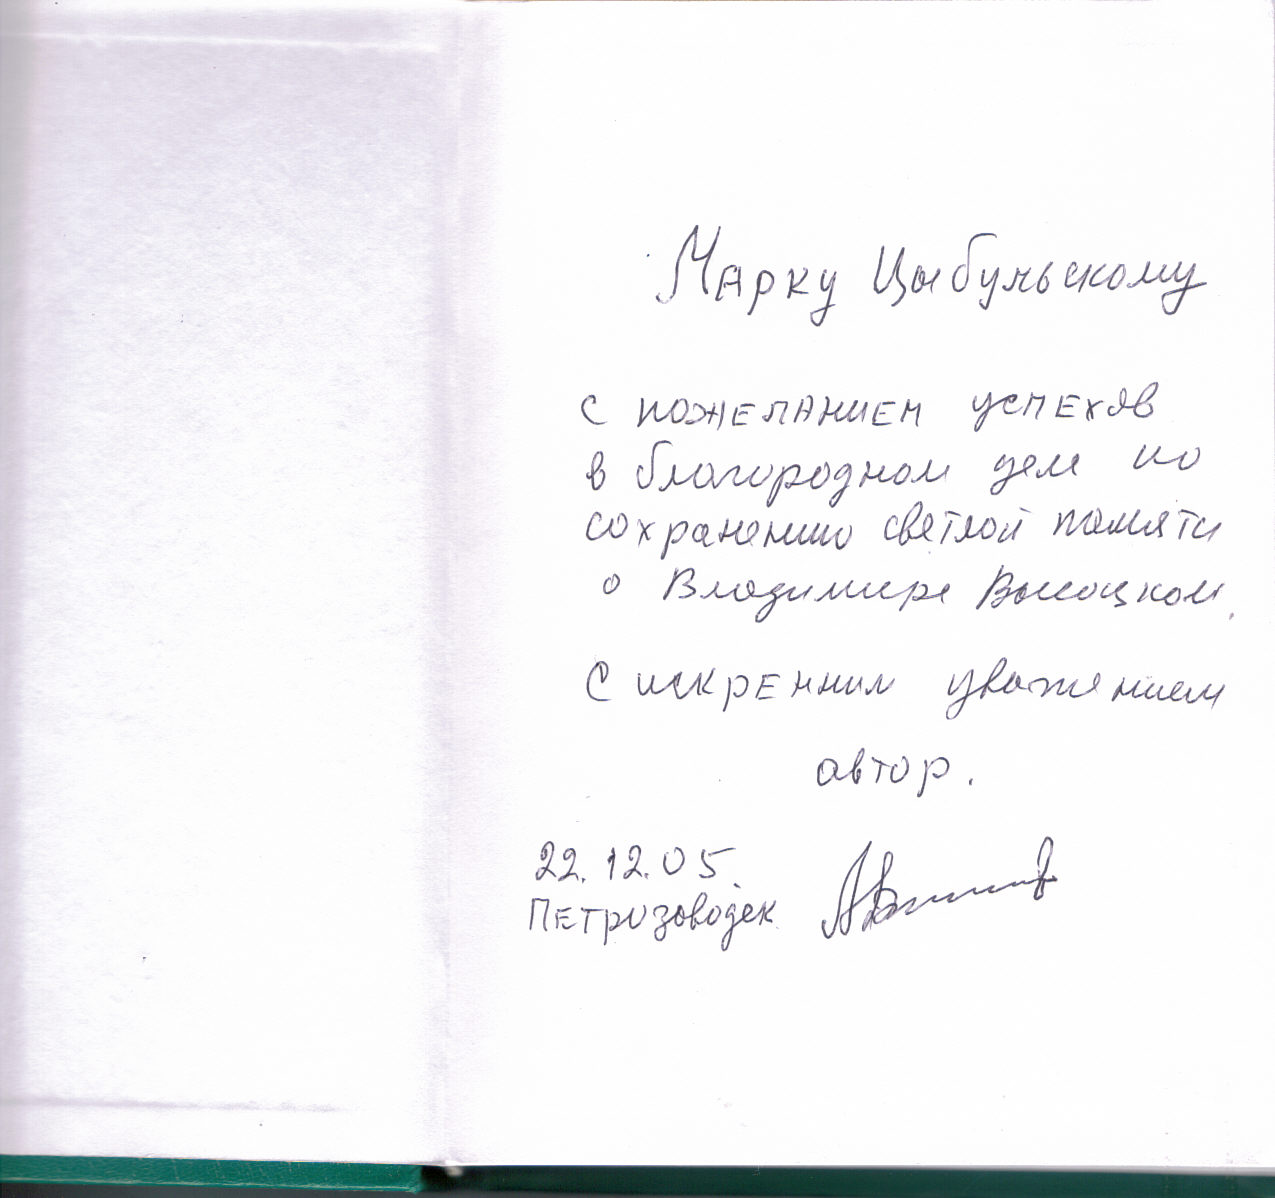 Марку Цыбульскому
с пожеланием успехов
в благородном деле по
сохранению светлой памяти
о Владимире Высоцком.
С искренним уважением
автор.
22.12.05.
Петрозаводск